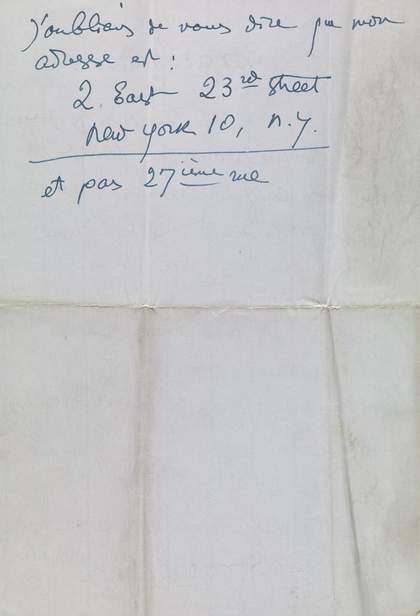 J'oubliais de vous dire que mon
adresse est :
2. East 23rd Street
New York 10, N.Y.
et pas 27ième rue